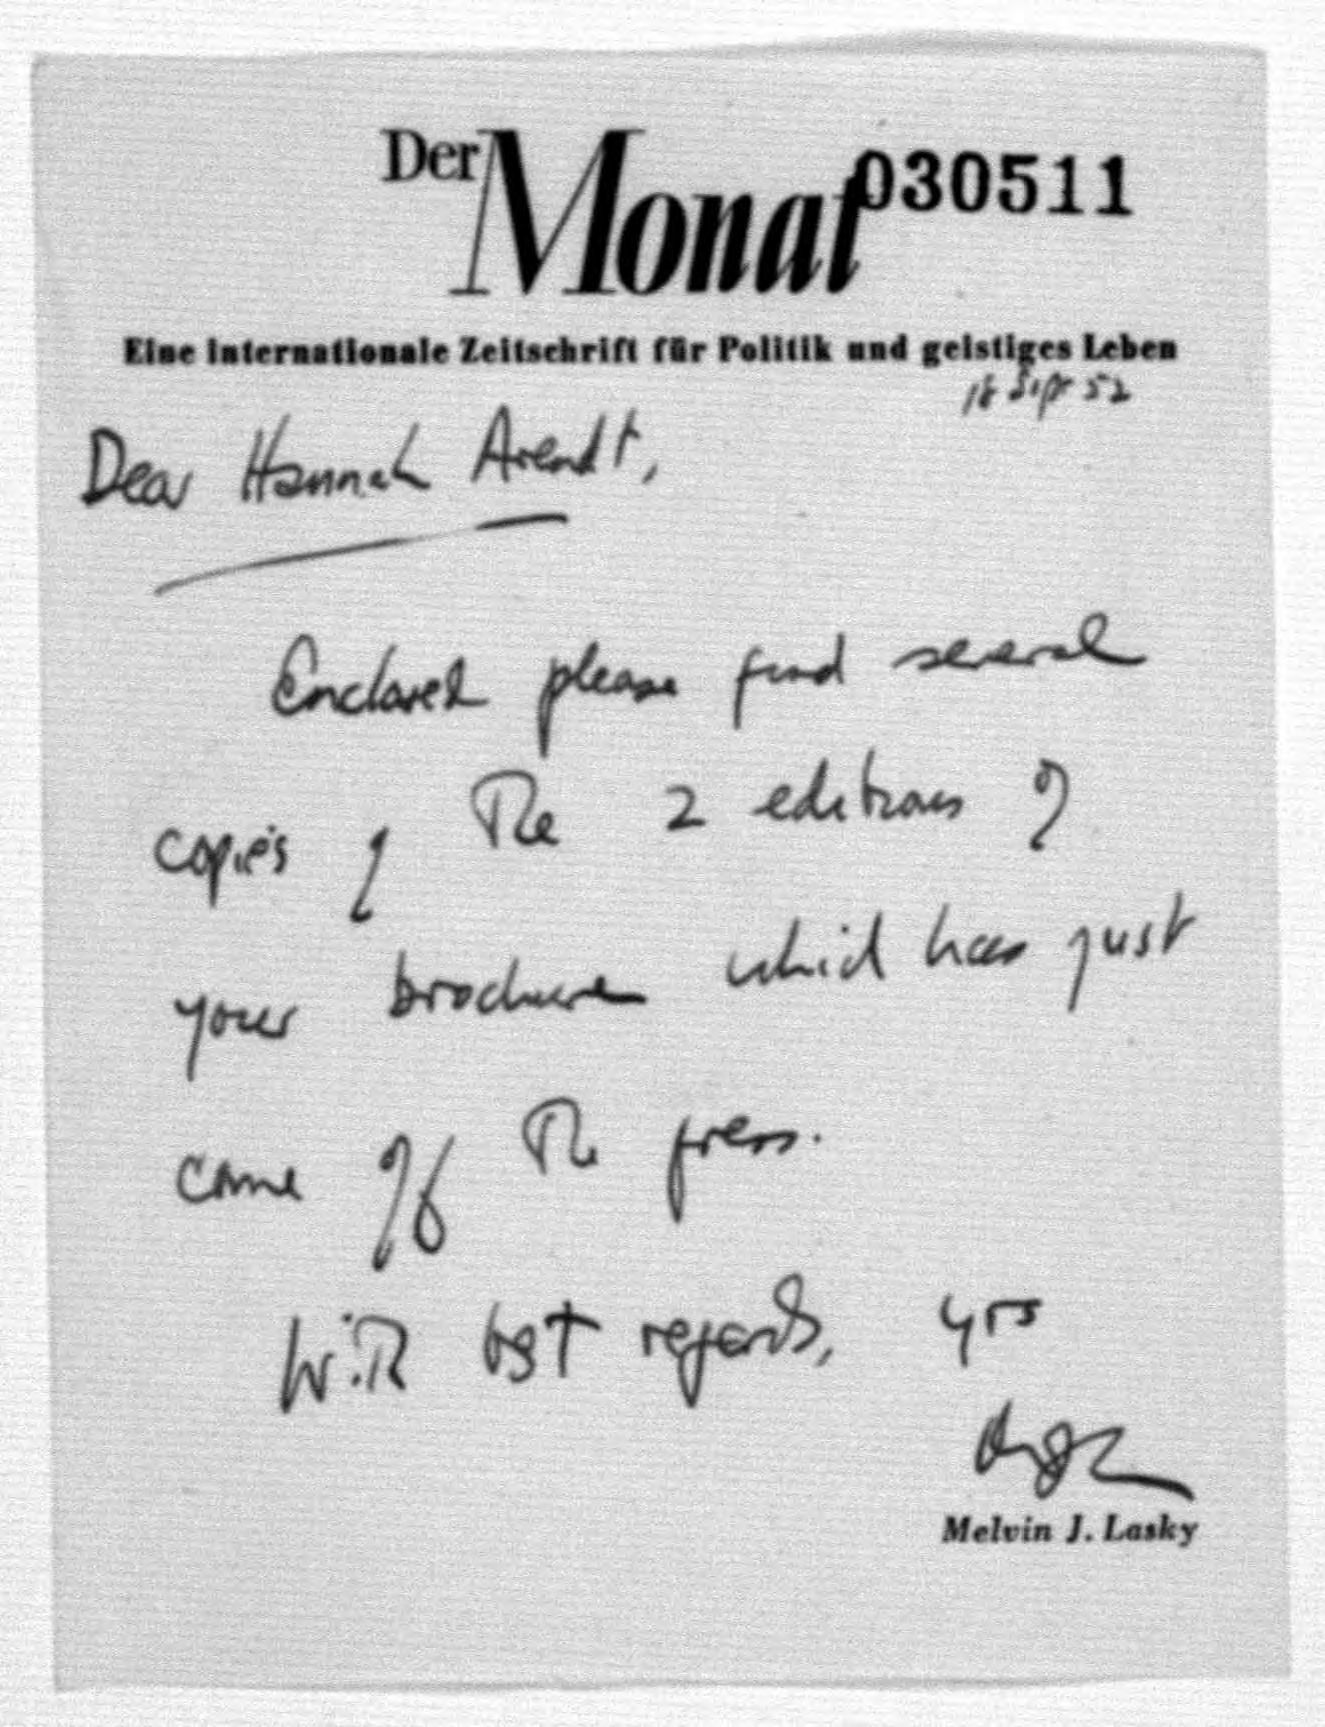 Der Monat 030511
Eine internationale Zeitschrift für Politik und geistiges Leben
18 Sept 52
Dear Hannah Arendt,
Enclosed please find several
copies of the 2 editions of
your brochure which has just
come off the press.
With best regards, yrs
Melvin J. Lasky